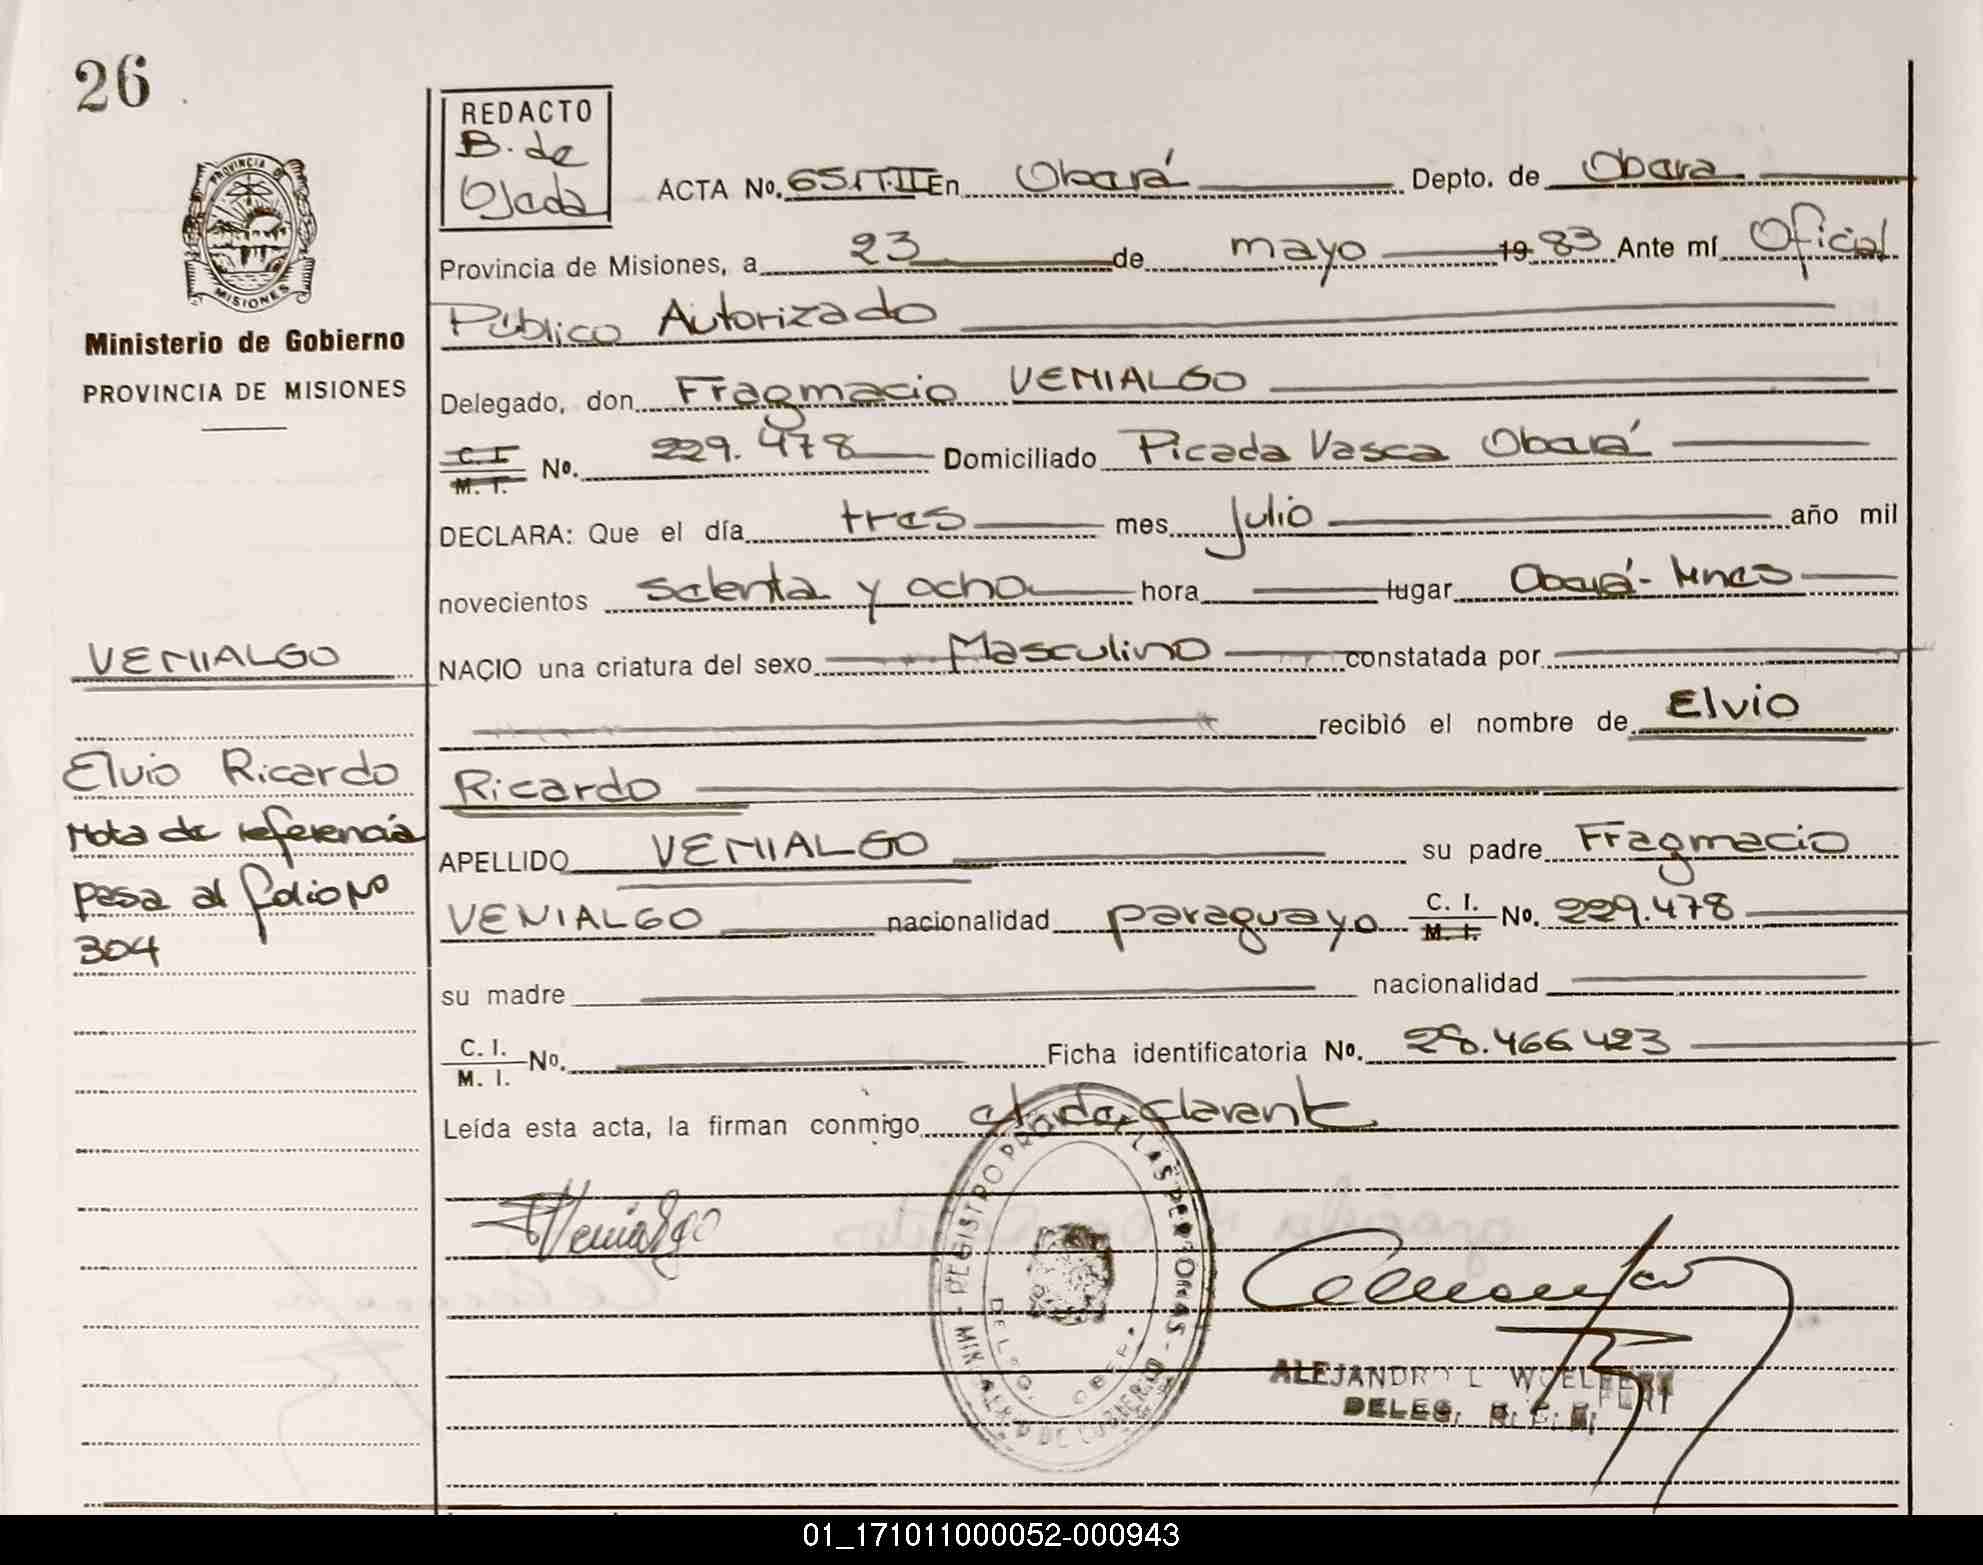 26
REDACTO
B. de
Ojeda
ACTA No. 651T.II En Oberá Depto. de Obera
Provincia de Misiones, a 23 de mayo 19 83 Ante mí Oficial
Público Autorizado
PROVINCIA DE MISIONES
Ministerio de Gobierno
PROVINCIA DE MISIONES
Delegado, don Fragmacio VENIALGO
C. I. M. I. No. 229.478 Domiciliado Picada Vasca Oberá
DECLARA: Que el día tres mes Julio año mil
novecientos setenta y ocho hora lugar Oberá - Mnes
VENIALGO
NACIO una criatura del sexo Masculino constatada por
recibió el nombre de Elvio
Elvio Ricardo
Ricardo
Nota de referencia
pasa al folio No
304
APELLIDO VENIALGO su padre Fragmacio
VENIALGO nacionalidad paraguayo C. I. M. I. No. 229.478
su madre nacionalidad
C. I. M. I. No. Ficha identificatoria No. 28.466423
Leída esta acta, la firman conmigo el declarante
Venialgo
REGISTRO PROV. LAS PERSONAS - MIN. DE GOBIERNO
DELEG. OBERA
ALEJANDRO L WOELFERT
DELEG. R. C. R.
01_171011000052-000943